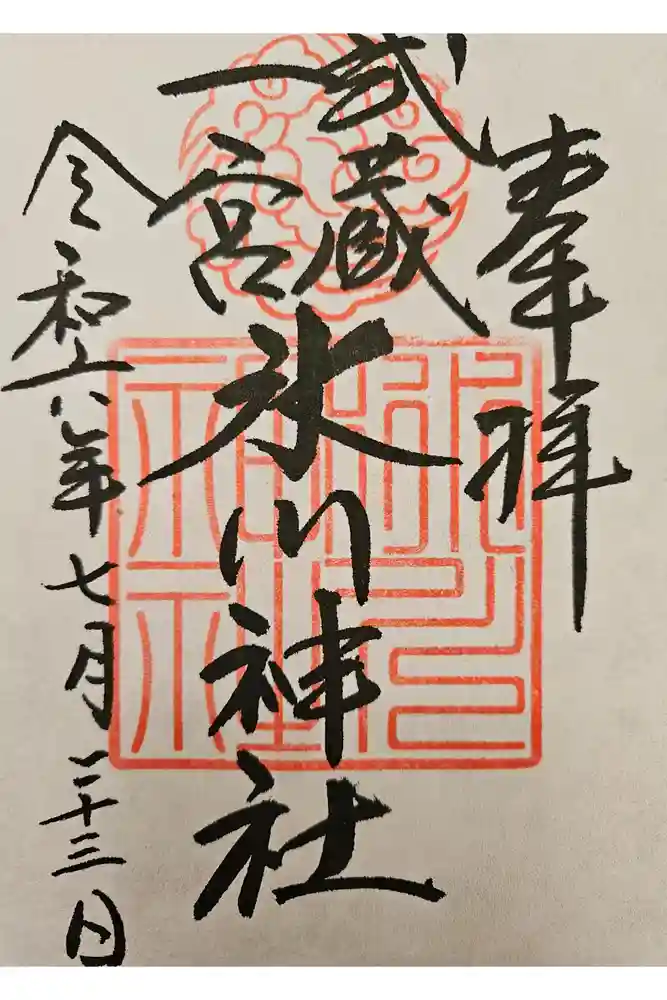 奉拝
武蔵
一宮
氷川神社
令和六年七月二十三日
氷川神社